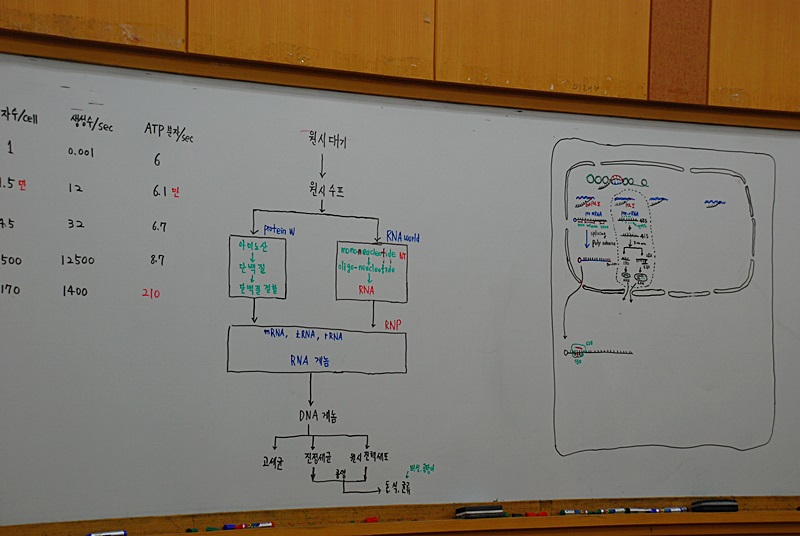 자수/cell 생성수/sec ATP 분자/sec
1 0.001 6
1.5만 12 6.1만
4.5 32 6.7
500 12500 8.7
170 1400 210
원시대기
원시수프
protein W
아미노산
단백질
단백질 결합
RNA world
mononucleotide NT
oligo-nucleotide
RNA
RNP
mRNA, tRNA, rRNA
RNA 게놈
DNA 게놈
고세균 진정세균 원시 진핵세포
공생
동.식.균류
splicing
poly adenine
45S